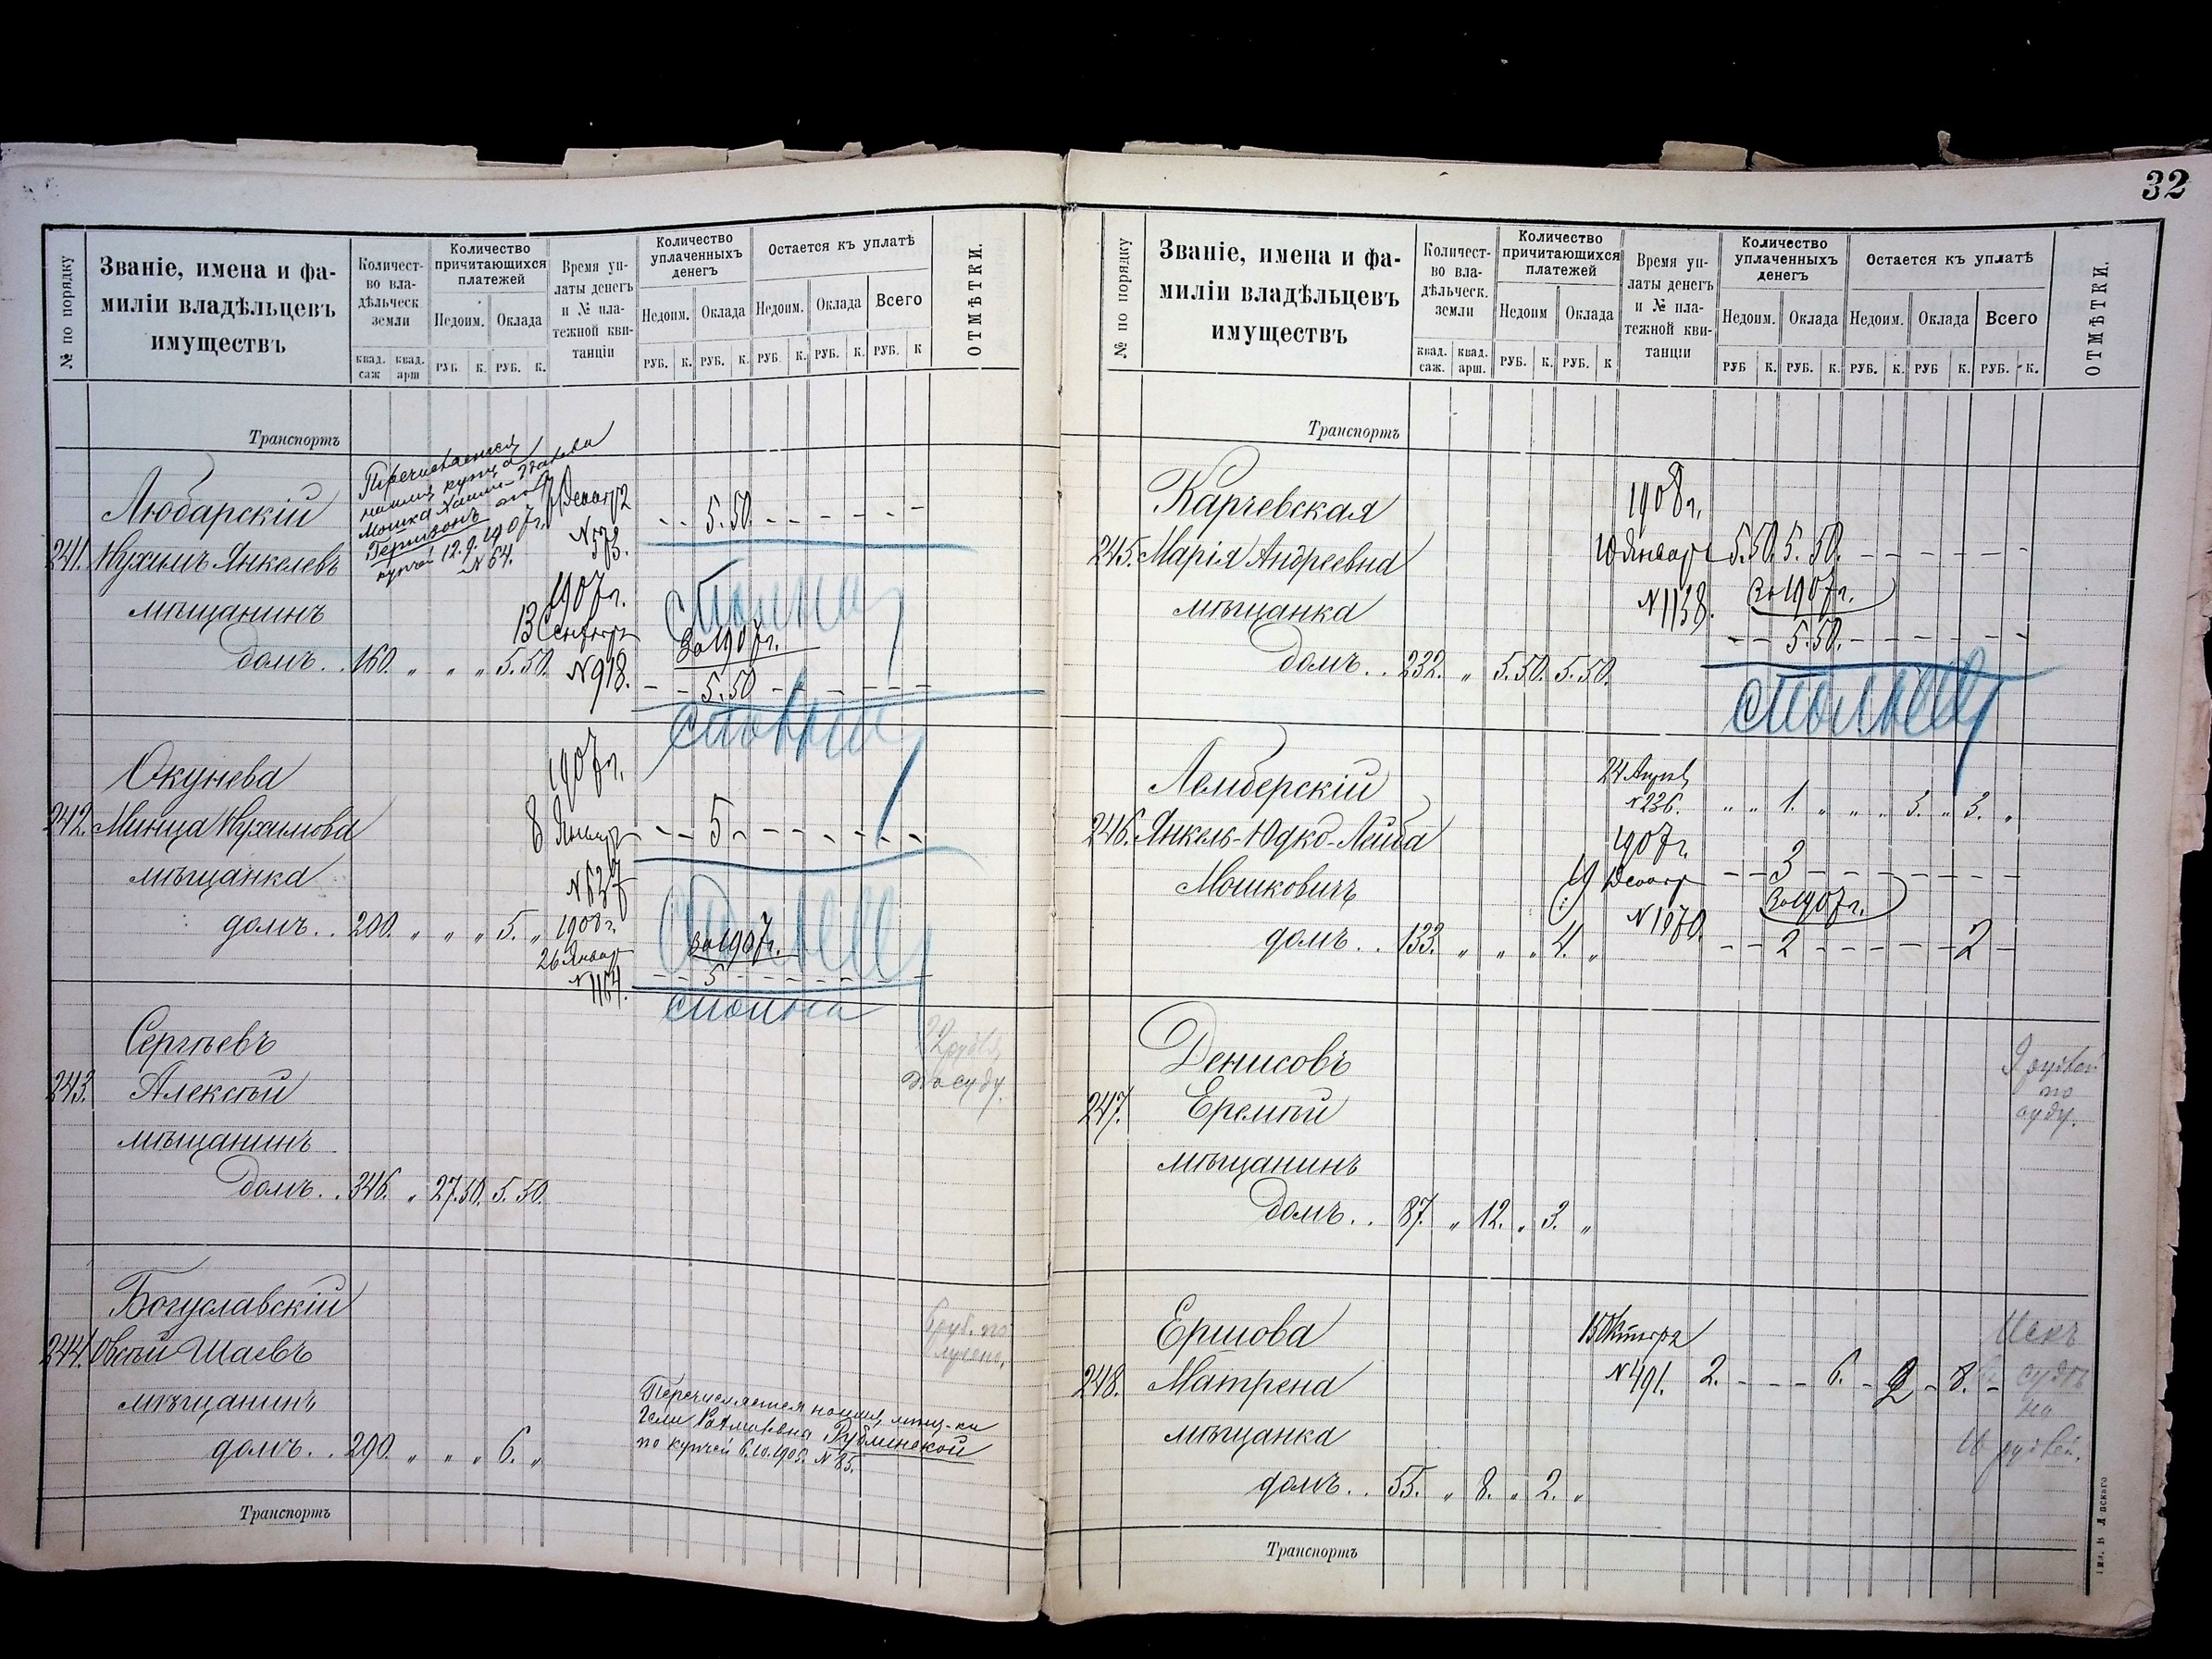 32
№ по порядку
Званіе, имена и фа-
миліи владѣльцевъ
имуществъ
Количест-
во вла-
дѣльческ.
земли
квад. саж
квад. арш
Количество
причитающихся
платежей
Недоим.
Оклада
РУБ. К. РУБ. К.
Время уп-
латы денегъ
и № пла-
тежной кви-
танціи
Количество
уплаченныхъ
денегъ
Недоим.
Оклада
РУБ. К. РУБ. К.
Остается къ уплатѣ
Недоим.
Оклада
Всего
РУБ. К. РУБ. К. РУБ. К
ОТМѢТКИ.
Транспортъ
Любарскій
241. Нухимъ Янкелевъ
мѣщанинъ
домъ . . 160. „ „ „ 5. 50.
купчей 12.9.1907 г.
№ 64.
№ 573.
5. 50.
1907 г.
13 Сентября
№ 918.
За 1907 г.
5. 50
Окунева
242. Минца Нухимова
мѣщанка
домъ . . 200. „ „ „ 5. „
1907 г.
8 Января
5
1908 г.
26 Январ
№ 1164.
За 1907 г.
5
Сергѣевъ
243. Алексѣй
мѣщанинъ
домъ . . 346. „ 27. 50. 5. 50.
по суду.
Богуславскій
244. Овсѣй Шаевъ
мѣщанинъ
домъ . . 290. „ „ „ 6. „
Перечисляется на имя мѣщ-ки
Рублинской
по купчей 6.10.1905. № 85.
Транспортъ
№ по порядку
Званіе, имена и фа-
миліи владѣльцевъ
имуществъ
Количест-
во вла-
дѣльческ.
земли
квад. саж.
квад. арш.
Количество
причитающихся
платежей
Недоим
Оклада
РУБ. К. РУБ. К
Время уп-
латы денегъ
и № пла-
тежной кви-
танціи
Количество
уплаченныхъ
денегъ
Недоим.
Оклада
РУБ К. РУБ. К.
Остается къ уплатѣ
Недоим.
Оклада
Всего
РУБ. К. РУБ К. РУБ. К.
ОТМѢТКИ.
Транспортъ
Карчевская
245. Марія Андреевна
мѣщанка
домъ . . 232. „ 5. 50. 5. 50.
1908 г.
10 Января 5. 50. 5. 50.
№ 1138.
За 1907 г.
5. 50.
Лемберскій
246. Янкель-Юдко-Лейба
Мошковичъ
домъ . . 133. „ „ „ 4. „
24 Апрѣл
№ 236. „ „ 1. „ „ „ 3. „ 3. „
1907 г.
19 Декабр 3
№ 1070.
За 1907 г.
2 2
Денисовъ
247. Еремѣй
мѣщанинъ
домъ . . 87. „ 12. „ 3. „
по
суду.
Ершова
248. Матрена
мѣщанка
домъ . . 55. „ 8. „ 2. „
15 Октября
№ 491. 2. 6. 2 8.
Искъ
на
10 рублей.
Транспортъ